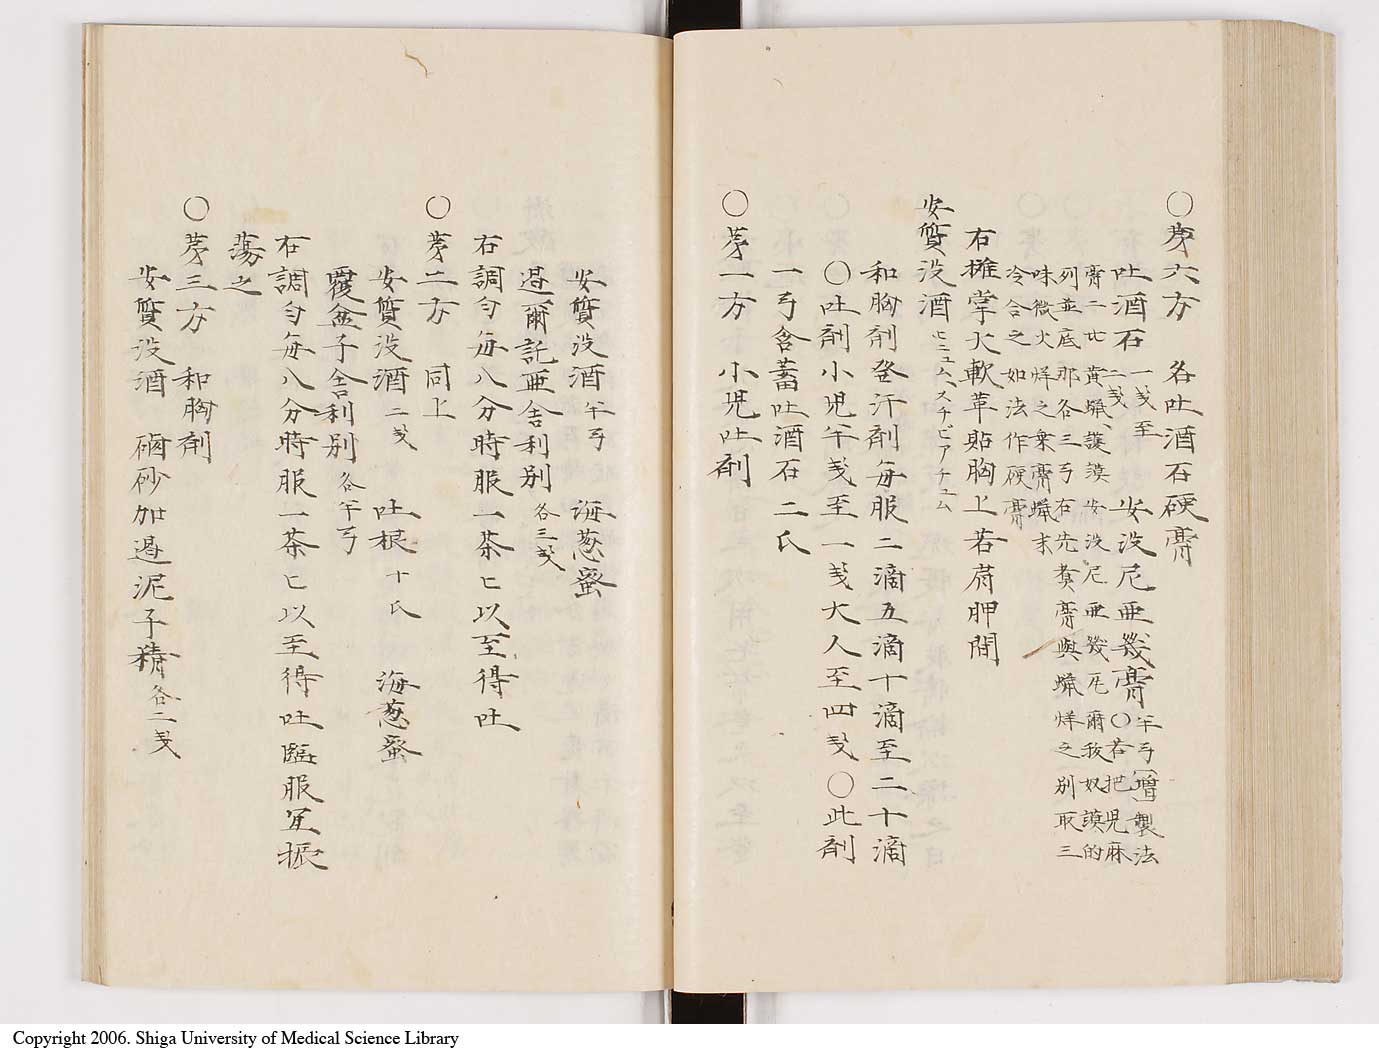 〇第六方 名吐酒石硬膏
吐酒石 一戔至二戔 安没尼亜幾膏 半弓〔増〕製法
〇若把児麻膏二廿 黄蝋、護謨安没尼亜幾 爾抜奴謨的
列並底那各三弓右先煮膏與蝋烊之別取三
味微火烊之集膏蝋末
冷合之如法作硬膏
右攤掌大軟革貼胸上若肩胛間
安質没酒 ビニュム、スチビアチュム
和胸剤発汗剤毎服二滴五滴十滴至二十滴
〇吐剤小児半戔至一戔大人至四戔〇此剤
一弓含蓄吐酒石二氏
〇第一方 小児吐剤
安質没酒 半弓 海葱蜜
遏爾託亜舎利別 各三戔
右調匀毎八分時服一茶匕以至得吐
〇第二方 同上
安質没酒 二戔 吐根 十氏 海葱蜜
覆盆子舎利別 各半弓
右調匀毎八分時服一茶匕以至得吐臨服宜振
蕩之
〇第三方 和胸剤
安質没酒 磠砂加遏泥子精 各二戔
Copyright 2006. Shiga University of Medical Science Library